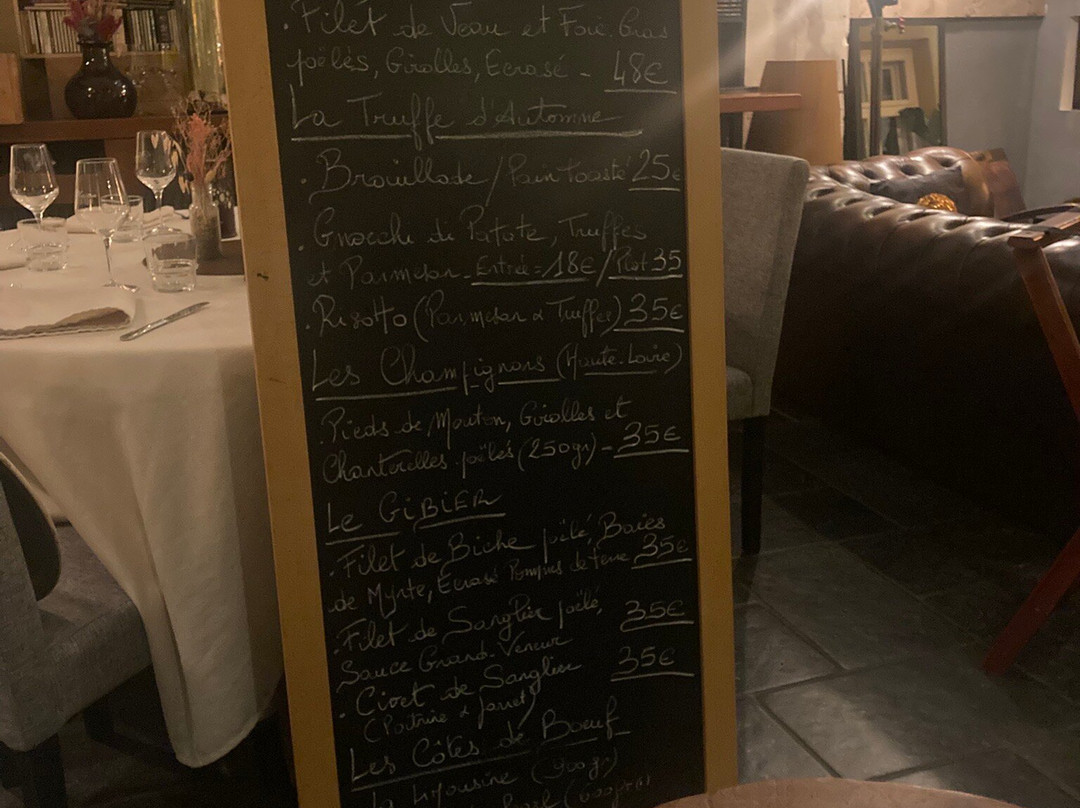 . Filet de Veau et Foie Gras
poêlés, Girolles, Ecrasé - 48€
La Truffe d'Automne
. Brouillade / Pain toasté 25€
. Gnocchi di Patate, Truffes
et Parmesan - Entrée = 18€ / Plat 35
. Risotto (Parmesan & Truffes) 35€
Les Champignons (Haute-Loire)
. Pieds de Mouton, Girolles et
Chanterelles poêlés (250gr) - 35€
Le GiBiER
. Filet de Biche poêlé, Baies
de Myrte, Ecrasé Pommes de terre 35€
. Filet de Sanglier poêlé,
Sauce Grand-Veneur 35€
. Civet de Sanglier 35€
(Poitrine & Jarret)
Les Côtes de Boeuf
La Limousine (900gr)
(600gr)